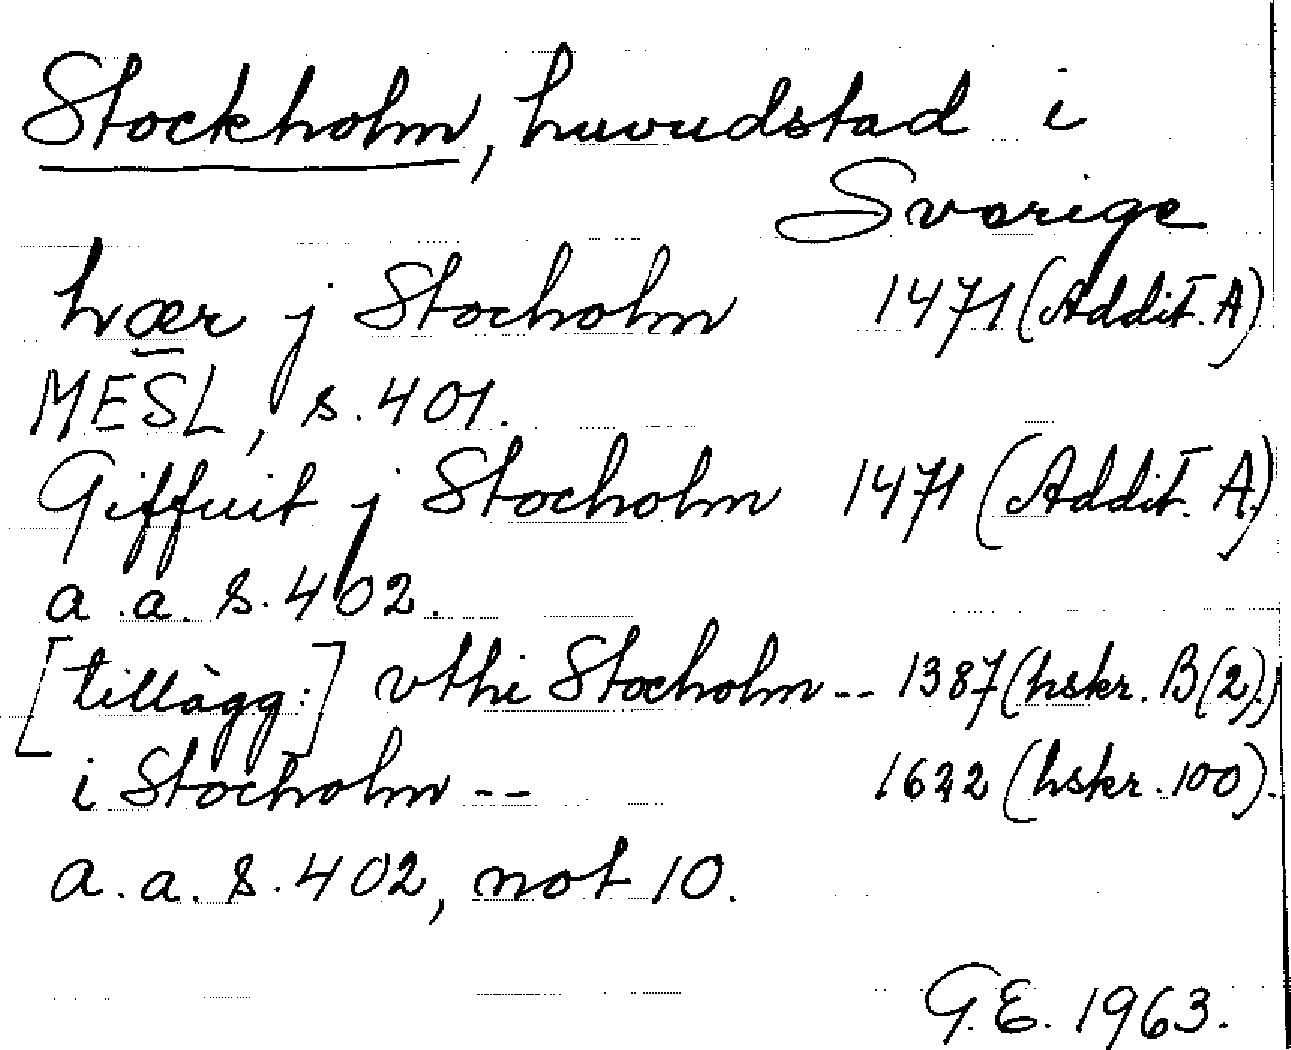 Stockholm, huvudstad i
Sverige
hvær j Stocholm 1471 (Addit. A)
MESL, s. 401.
Giffuit j Stocholm 1471 (Addit. A)
a. a. s. 402.
[tillägg:] vthi Stocholm -- 1387 (hskr. B(2).)
i Stocholm -- 1622 (hskr. 100).
a. a. s. 402, not 10.
G. E. 1963.